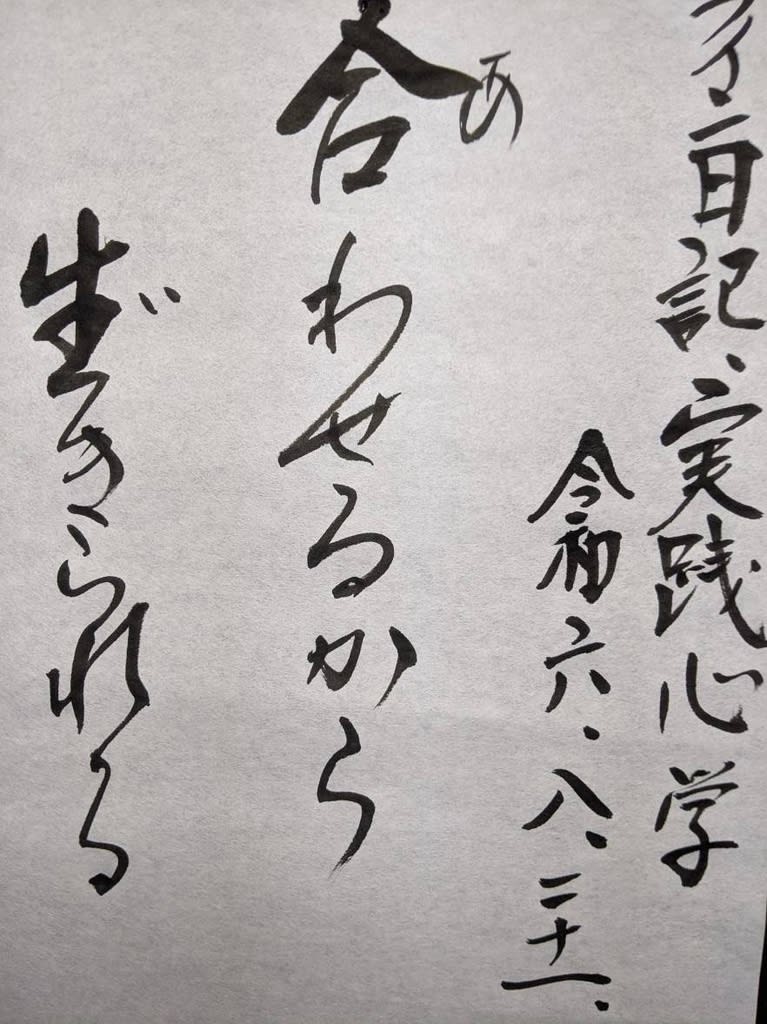 日記、実践心学
令和六、八、二十一、
合わせるから
あ
生きられる
い